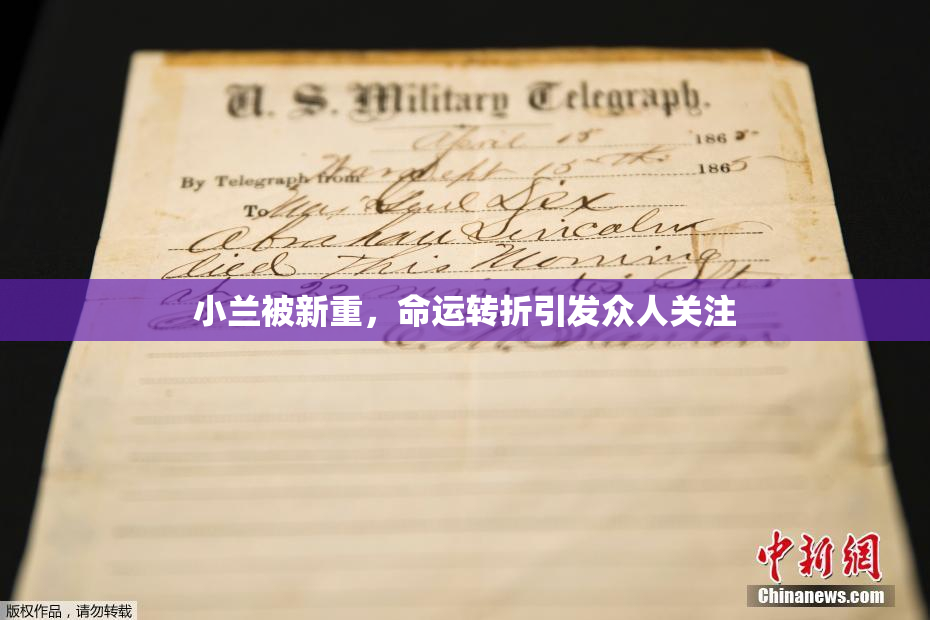 U. S. Military Telegraph.
April 15 1865
By Telegraph from War Dept 15th 1865
To Maj Genl Dix
Abraham Lincoln
died This Morning
at 22 minutes after
小兰被新重，命运转折引发众人关注
E. M. Stanton
中新网
Chinanews.com
版权作品，请勿转载